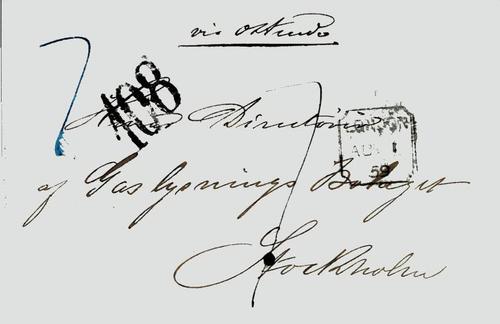 via Ostende
7 108
Directörn
LONDON
AU 1
59
af Gaslysnings Bolaget
Stockholm